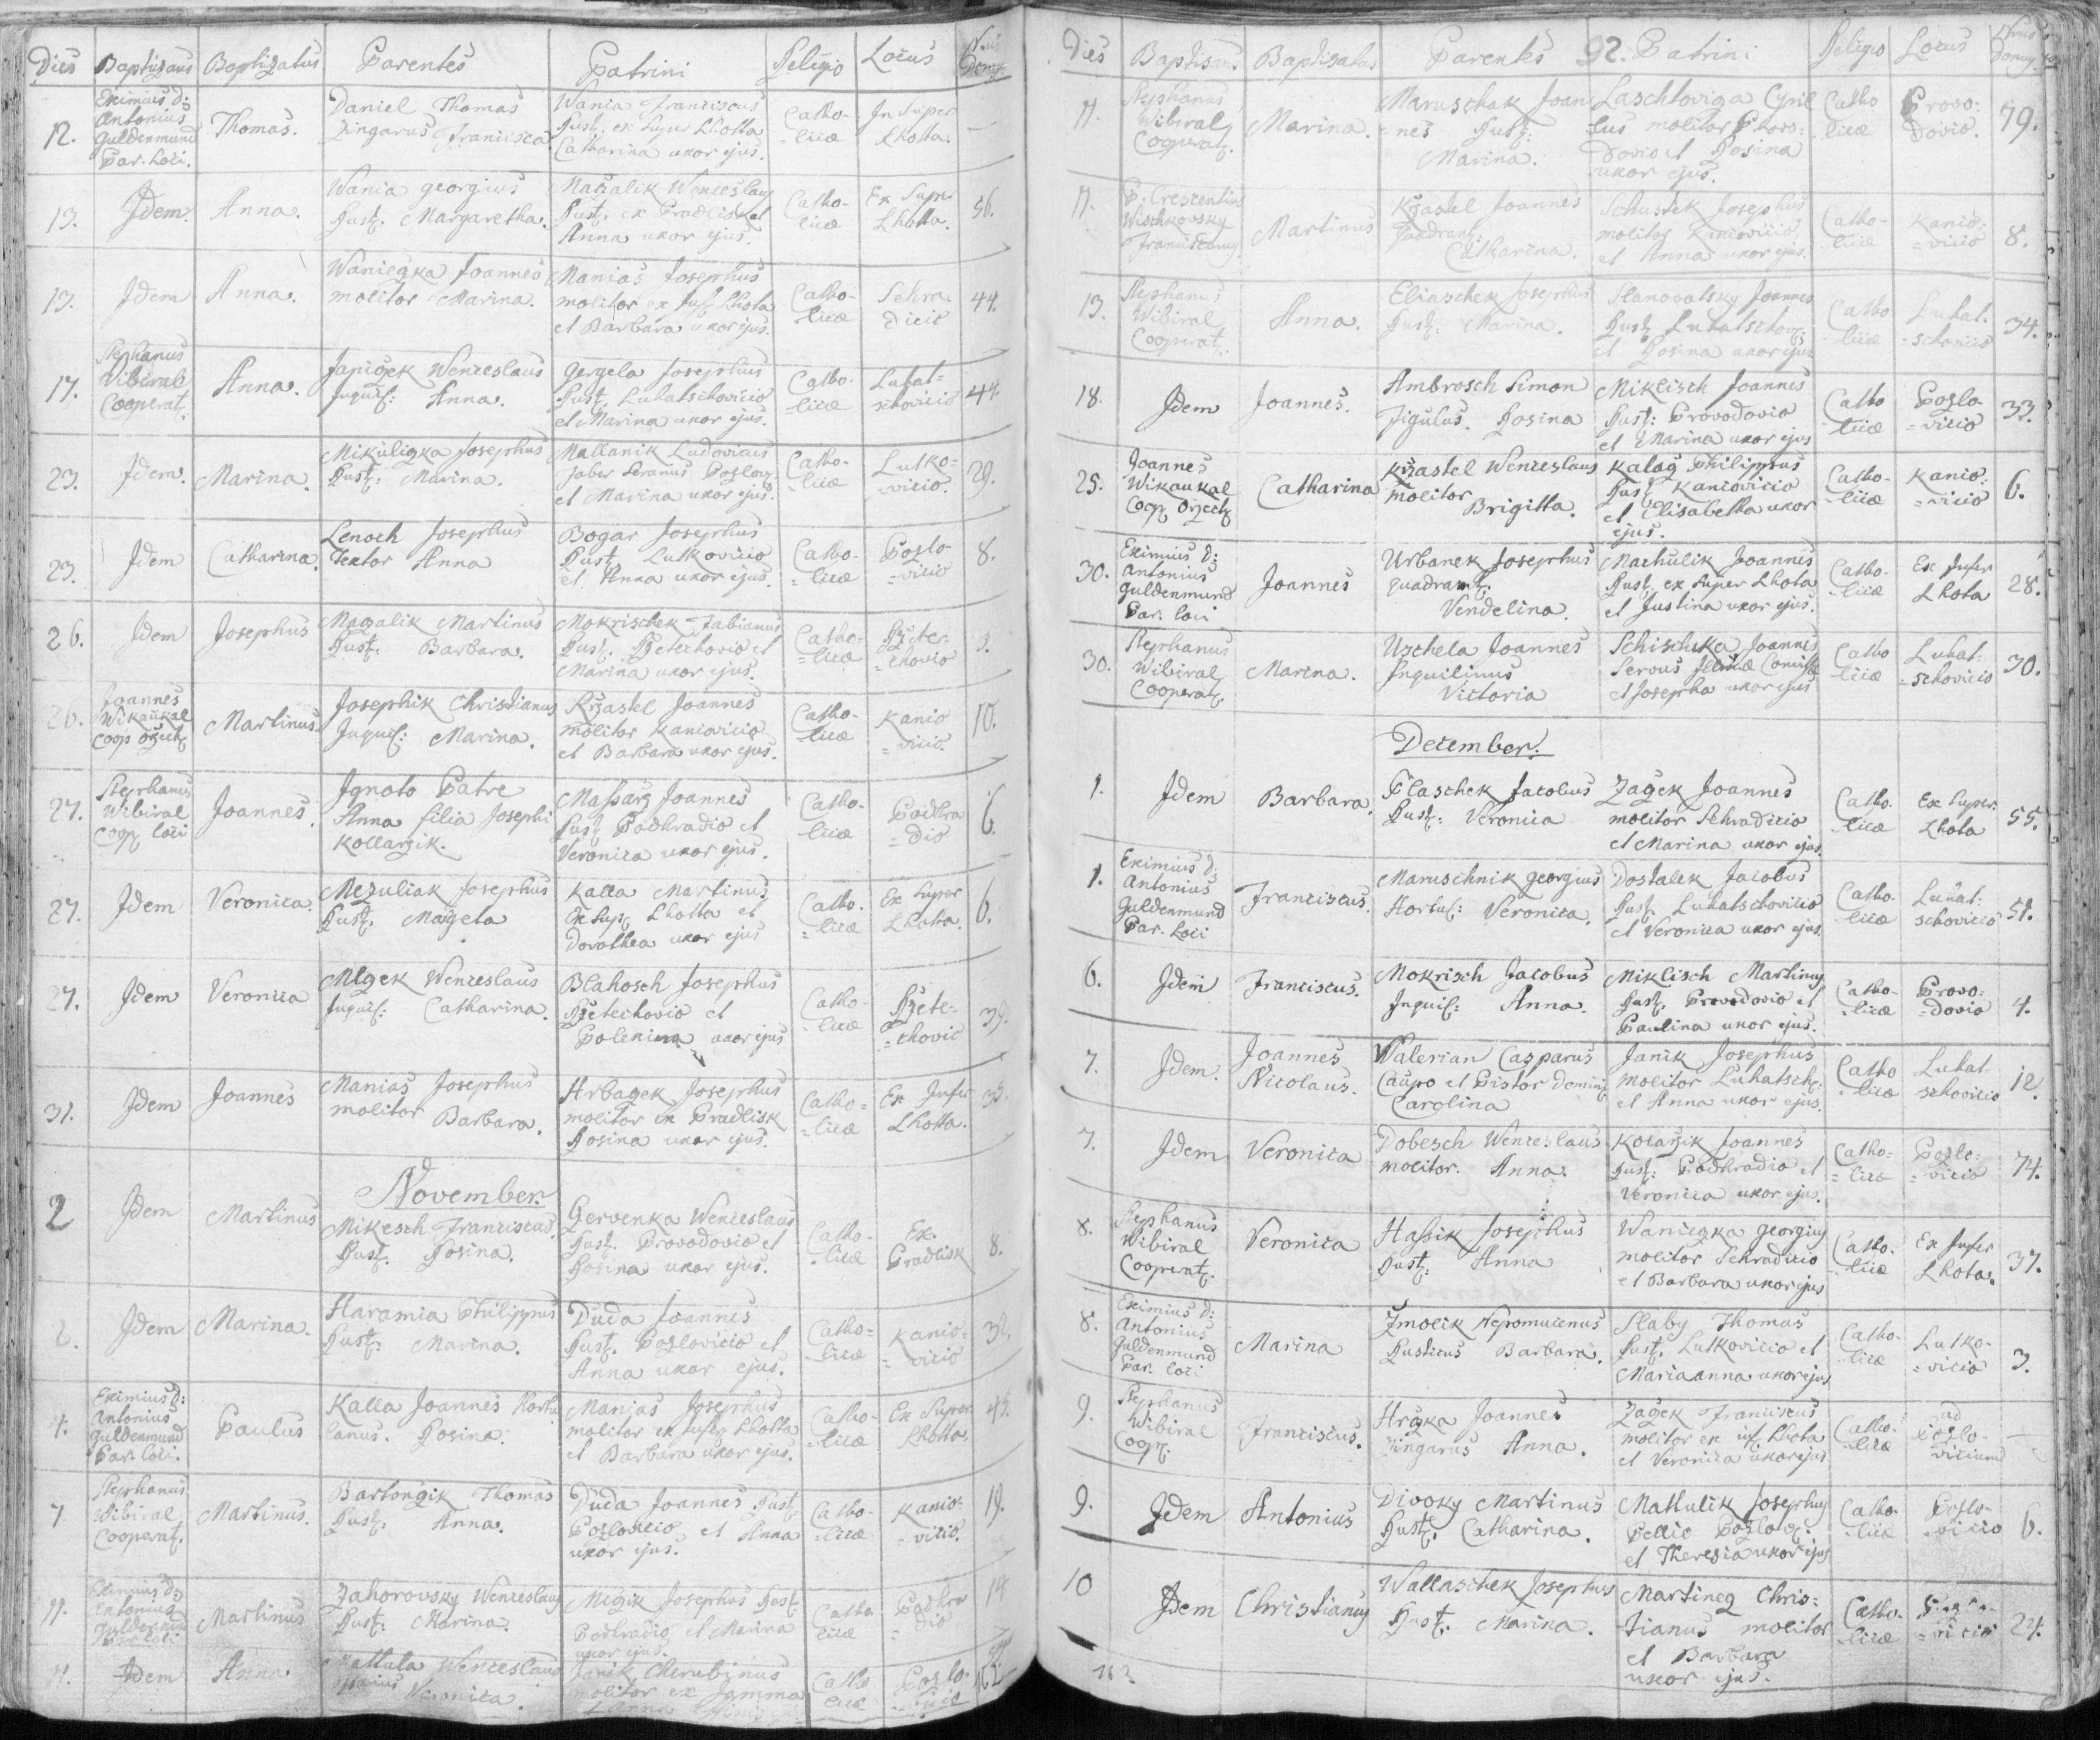 Dies Baptizans Baptizatus Parentes Patrini Religio Locus Nrus Domus
12. Eximius d: Antonius Guldenmund Par. Loci. Thomas. Daniel Thomas Zingarus Francisca Wania Franciscus Rust. ex Super Lhotta Catharina uxor ejus. Catho-licæ In Super Lhotta. —
13. Idem. Anna. Wania Georgius Rust. Margaretha. Maczalik Wenceslaus Rust. ex Pradlisk et Anna uxor ejus. Catho-licæ Ex Super Lhotta. 56.
13. Idem Anna. Waniczka Joannes molitor Marina. Manias Josephus molitor ex Inf. Lhota et Barbara uxor ejus. Catho-licæ Sehra-dicio 44.
17. Stephanus Wibiral Cooperat. Anna. Janiczek Wenceslaus Inquil: Anna. Gergela Josephus Rust. Luhatschovicio et Marina uxor ejus. Catho-licæ Luhat=schovicio 44.
23. Idem. Marina. Mikuliczka Josephus Rust: Marina. Mallanik Ludovicus faber ferarius Pozlov. et Marina uxor ejus. Catho-licæ Lutko=vicio. 29.
23. Idem Catharina. Lenoch Josephus Textor Anna Bogar Josephus Rust. Lutkovicio et Anna uxor ejus. Catho-licæ Pozlo-vicio 8.
26. Idem Josephus Mazalik Martinus Rust: Barbara. Mokrischek Fabianus Rust. Rzetechovio et Marina uxor ejus. Catho=licæ Rzete-chovio 3.
26. Joannes Wikaukal Coop Ozech Martinus. Josephik Christianus Inquil: Marina. Krzastel Joannes molitor Kaniovicio et Barbara uxor ejus. Catho-licæ Kanio vicio. 10.
27. Stephanus Wibiral Coop loci Joannes. Ignoto Patre Anna filia Josephi Kollarzik. Massarz Joannes Rust Podhradio et Veronica uxor ejus. Catho-licæ Podhra=dio 6.
27. Idem Veronica. Mezuliak Josephus Rust. Mageta Kalla Martinus Ex Sup. Lhotta et Dorothea uxor ejus Catho-licæ Ex Super Lhotta. 6.
27. Idem Veronica Mlczek Wenceslaus Inquil: Catharina. Blahosch Josephus Rzetechovio et Polexina uxor ejus Catho-licæ Rzete=chovio 39.
31. Idem Joannes Manias Josephus molitor Barbara. Hrbaczek Josephus molitor ex Pradlisk Rosina uxor ejus. Catho=licæ Ex Infer Lhotta.
November.
2 Idem Martinus Mikesch Franciscus. Rust. Rosina. Czervenka Wenceslaus Rust. Provodovio et Rosina uxor ejus. Catho-licæ Ex Pradlisk 8.
2. Idem Marina. Haramia Philippus Rust. Marina. Duda Joannes Rust. Pozlovicio et Anna uxor ejus. Catho=licæ Kanio=vicio
4. Eximius d: Antonius Guldenmund Par. Loci. Paulus Kalla Joannes Hortu lanus. Rosina. Manias Josephus molitor ex Infer. Lhotta et Barbara uxor ejus. Catho-licæ Ex Super Lhotta. 45.
7 Stephanus Wibiral Cooperat. Martinus. Bartonczik Thomas Rust: Anna. Duda Joannes Rust Pozlovicio et Anna uxor ejus. Catho-licæ Kanio=vicio. 19.
11. Eximius d: Antonius Guldenmund Par. Loci Martinus Zahorovsky Wenceslaus Rust: Marina. Miczik Josephus Rust. Podhradio et Marina uxor ejus. Catho licæ Podhra dio 14
11. Idem Anna. Wenceslaus Veronica. Janik Cherubinus molitor ex Catho licæ Pozlo-vicio
Dies Baptizans. Baptizatus Parentes 92. Patrini Religio Locus Nrus Domus
11. Stephanus Wibiral Cooperat. Marina. Maruschak Joan=nes Rust: Marina. Laschtoviga Cyril=lus molitor Provo=dovio et Rosina uxor ejus. Catho-licæ Provo-dovio. 79.
11. P. Crescentius Wischkovsky Franciscanus Martinus Krzastel Joannes quadrant. Catharina. Schustek Josephus molitor Kaniovicio et Anna uxor ejus. Catho-licæ Kanio=vicio 8.
13. Stephanus Wibiral Cooperat. Anna. Eliaschek Josephus Rust: Marina. Stanovatsky Joannes Rust. Luhatschov. et Rosina uxor ejus Catho licæ Luhat=schovicio 34.
18. Idem Joannes. Ambrosch Simon Figulus. Rosina Miklisch Joannes Rust: Provodovio et Marina uxor ejus Catho licæ Pozlo=vicio 33.
25. Joannes Wikaukal Coop. Ozech Catharina Krzastel Wenceslaus molitor Brigitta. Kalacz Philippus Rust. Kaniovicio et Elisabetha uxor ejus. Catho-licæ Kanio=vicio 6.
30. Eximius d: Antonius Guldenmund Par. loci Joannes Urbanek Josephus quadrant. Vendelina. Machulik Joannes Rust. ex Super Lhota et Justina uxor ejus. Catho-licæ Ex Infer Lhota 28.
30. Stephanus Wibiral Cooperat. Marina. Uschela Joannes Inquilinus Victoria Schischka Joannes Servus Illmæ Comitissæ et Josepha uxor ejus Catho licæ Luhat=schovicio 30.
December.
1. Idem Barbara. Plaschek Jacobus Rust: Veronica Zagek Joannes molitor Sehradicio et Marina uxor ejus. Catho-licæ Ex Super Lhota 55.
1. Eximius d: Antonius Guldenmund Par. Loci Franciscus. Maruschnik Georgius Hortul: Veronica. Dostalek Jacobus Rust. Luhatschovicio et Veronica uxor ejus. Catho-licæ Luhat:schovicio 51.
6. Idem Franciscus. Mokrisch Jacobus Inquil: Anna. Miklisch Martinus Rust. Provodovio et Paulina uxor ejus. Catho-licæ Provo:dovio 4.
7. Idem. Joannes Nicolaus. Walerian Casparus Caupo et Pistor Domini Carolina Janik Josephus molitor Luhatsch: et Anna uxor ejus. Catho licæ Luhat-schovicio 12.
7. Idem Veronica Dobesch Wenceslaus molitor. Anna. Kolarzik Joannes Rust: Podhradio et Veronica uxor ejus. Catho=licæ Pozlo=vicio 74.
8. Stephanus Wibiral Cooperat. Veronica Hassik Josephus Rust: Anna Waniczka Georgius molitor Sehradicio et Barbara uxor ejus Catho-licæ Ex Infer Lhota. 37.
8. Eximius d: Antonius Guldenmund Par. loci Marina Zmolik Nepomucenus Rusticus Barbara. Slaby Thomas Rust. Lutkovicio et Mariaanna uxor ejus Catho-licæ Lutko-vicio 3.
9. Stephanus Wibiral Coop. Franciscus. Hrczka Joannes Zingarus Anna. Zagek Franciscus molitor ex inf. Lhota et Veronica uxor ejus Catho-licæ ad Pozlo-vicium —
9. Idem Antonius Divoky Martinus Rust: Catharina. Mattulik Josephus Pellio Pozlov. et Theresia uxor ejus Catho-licæ Pozlo-vicio 6.
10 Idem Christianus Wallaschek Josephus Rust. Marina. Martinecz Chris=tianus molitor et Barbara uxor ejus. Catho-licæ 24.
163